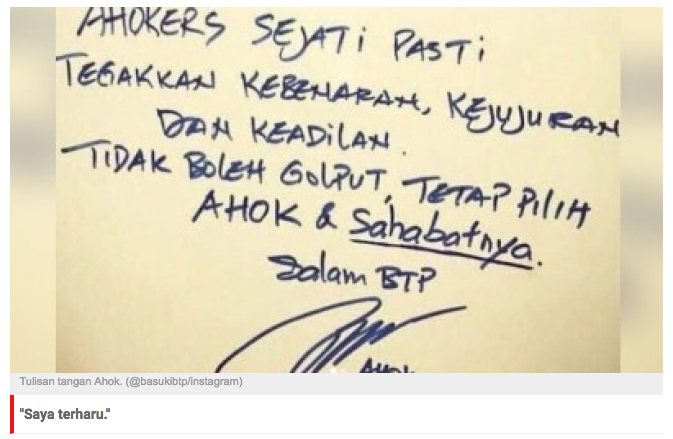 AHOKERS SEJATI PASTI
TEGAKKAN KEBENARAN, KEJUJURAN
DAN KEADILAN.
TIDAK BOLEH GOLPUT, TETAP PILIH
AHOK & Sahabatnya.
Salam BTP
AHOK
Tulisan tangan Ahok. (@basukibtp/instagram)
"Saya terharu."